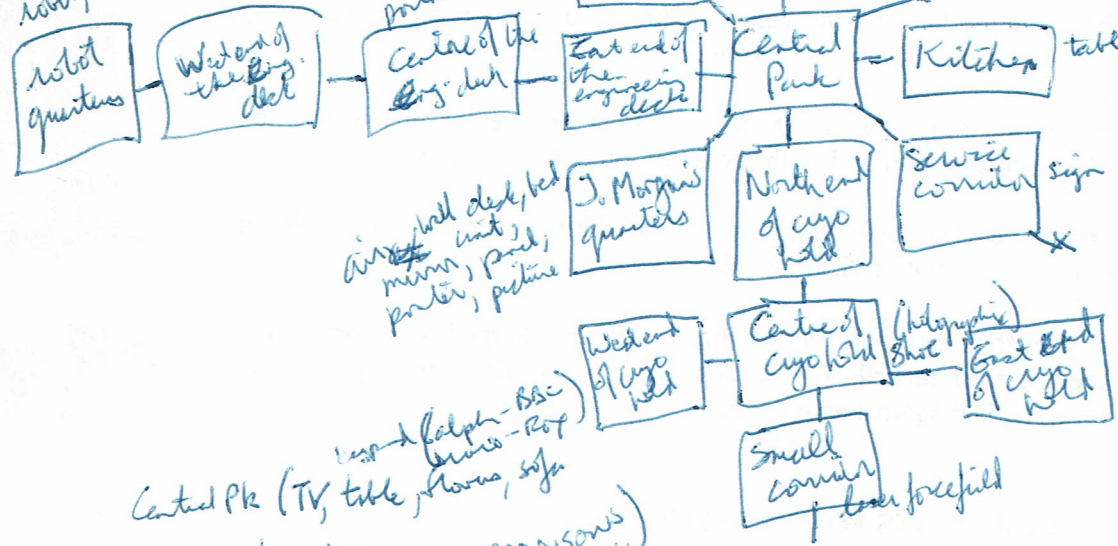 robot
quarters
West end of
the Eng.
deck
Centre of the
Eng. deck
East end of
the
engineering
deck
Central
Park
Kitchen
table
J. Morgan's
quarters
North end
of cryo
hold
Service
corridor
sign
X
wall desk, bed
unit,
mirror, panel,
poster, picture
West end
of cryo
hold
Centre of
cryo hold
(holographic)
Shot
East End
of cryo
hold
Small
corridor
laser forcefield
(alpha - BBC
Central Pk (TV, table, flowers, sofa